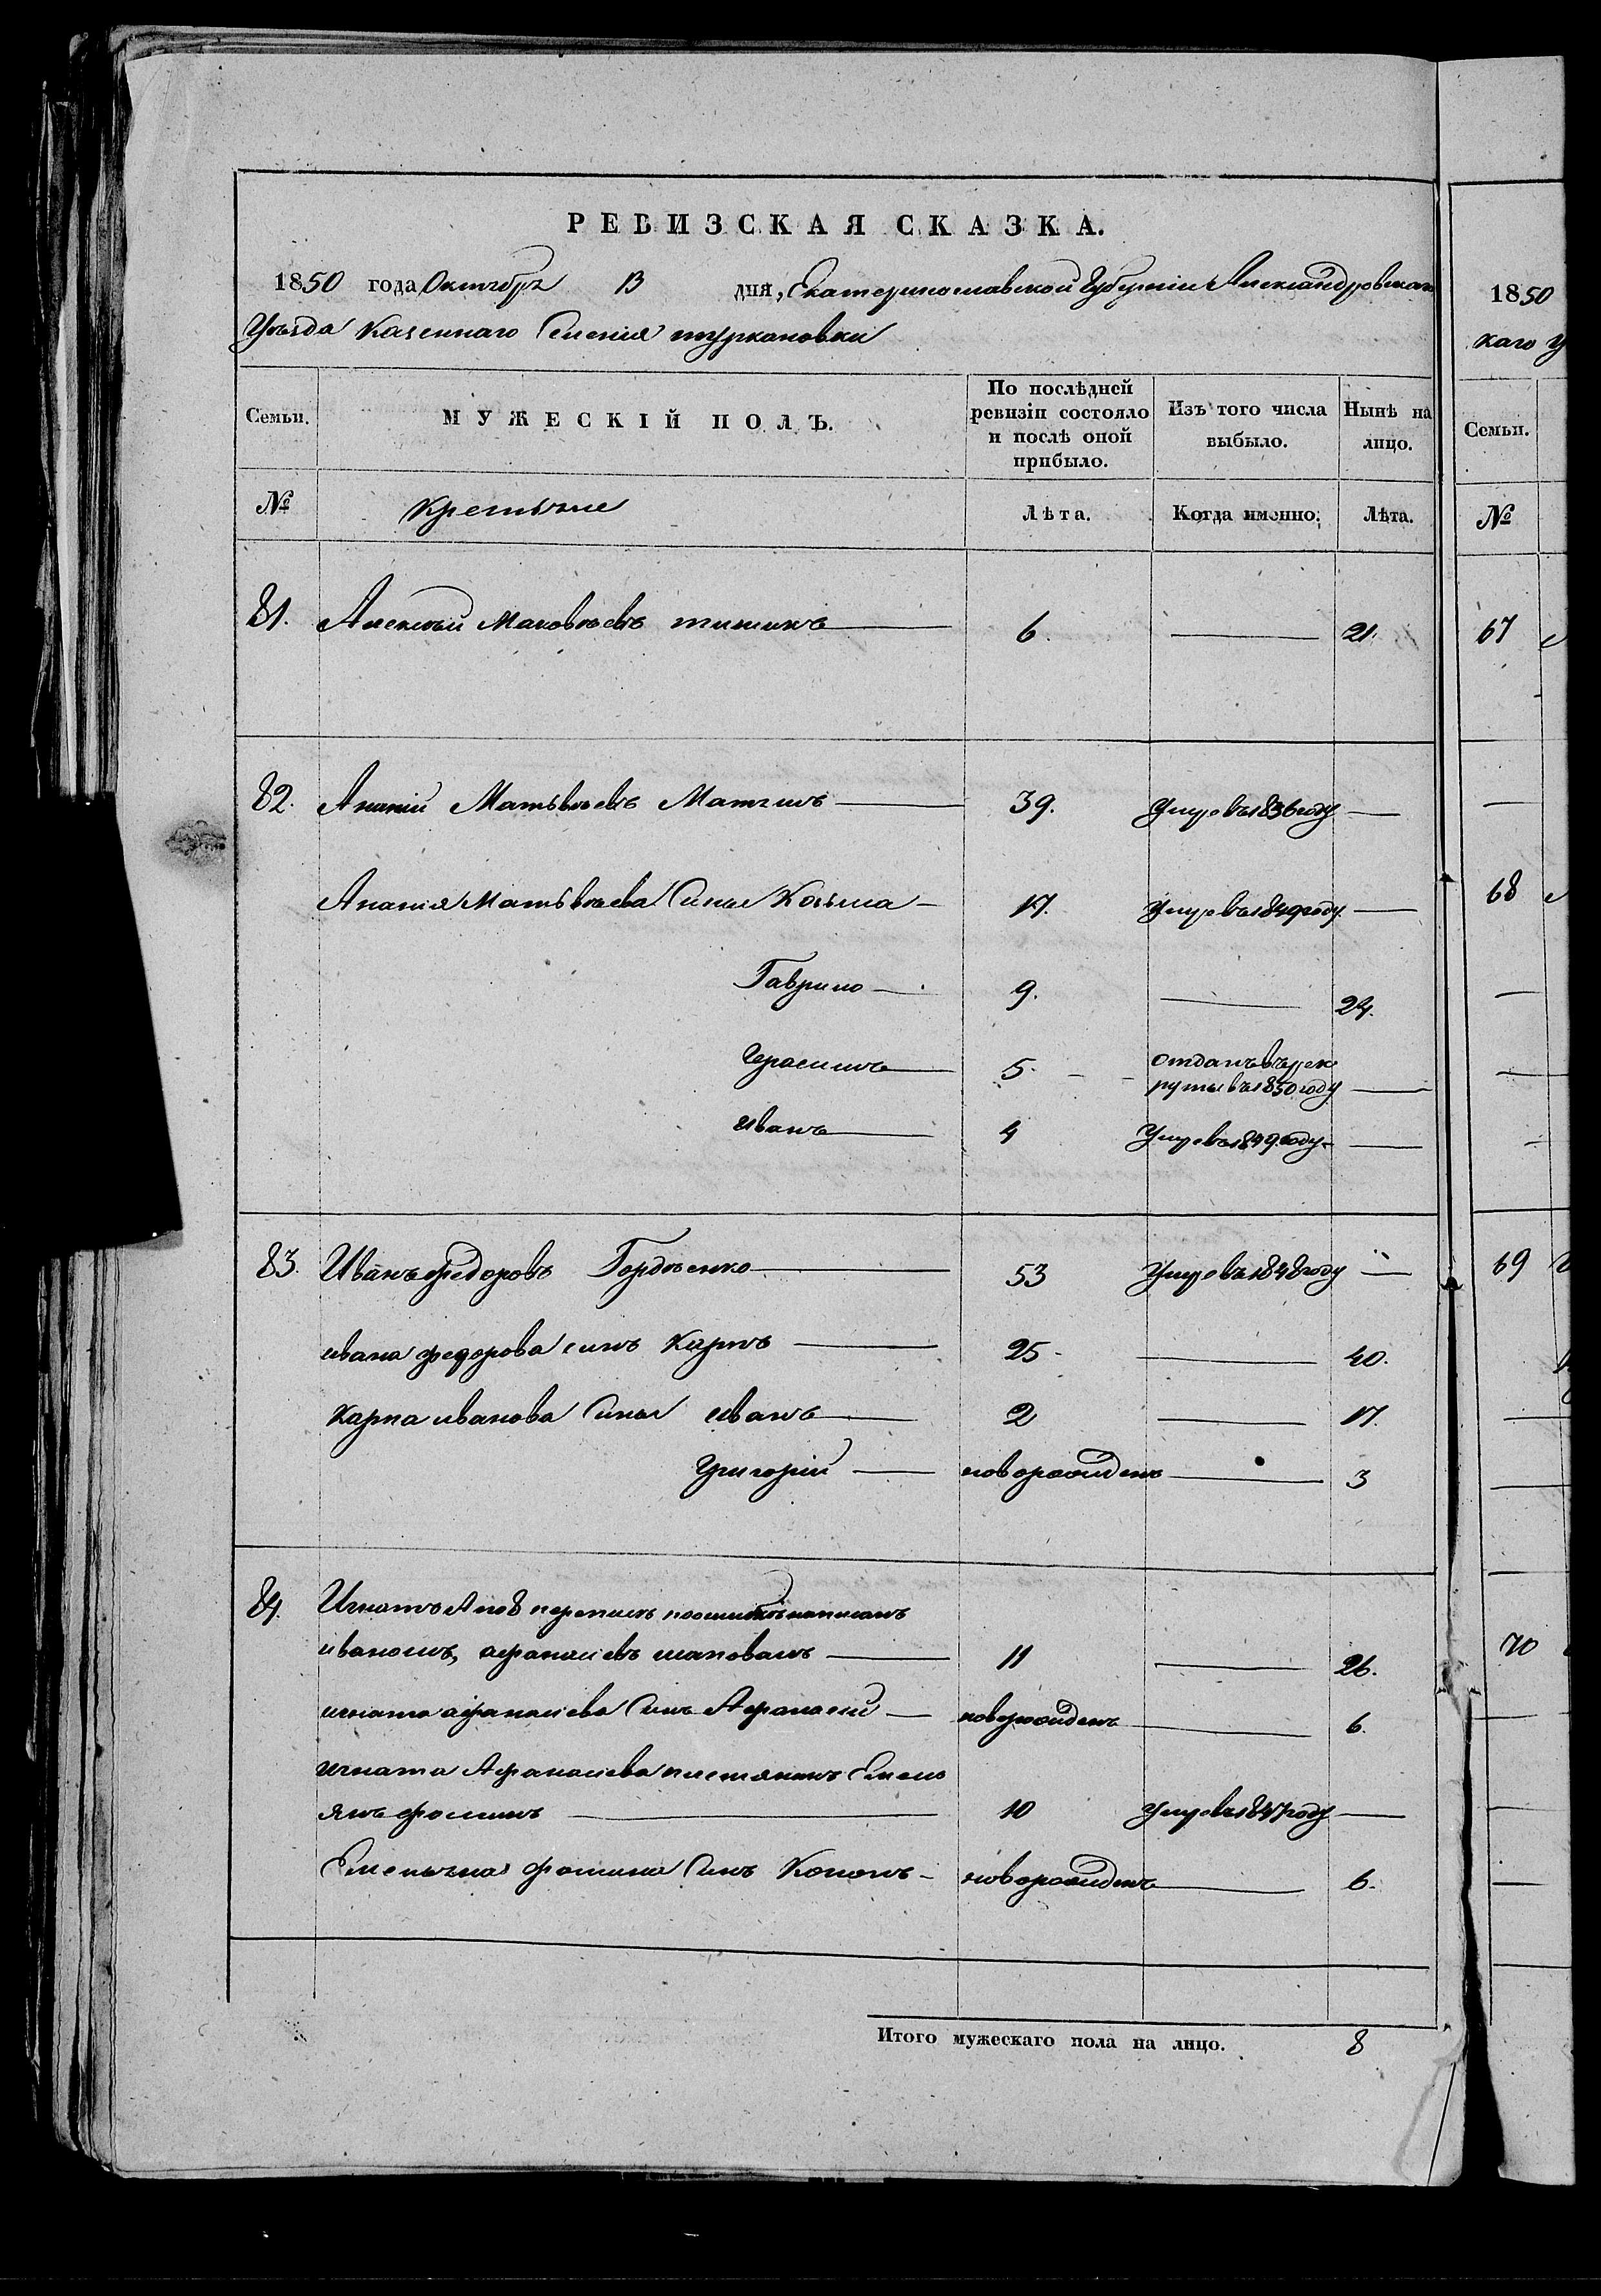 РЕВИЗСКАЯ СКАЗКА.
1850 года Октября 13 дня, Екатеринославской Губерніи Александровскаго
Уѣзда Казеннаго Селенія туркановки
Семьи. МУЖЕСКІЙ ПОЛЪ. По послѣдней ревизіи состояло и послѣ оной прибыло. Изъ того числа выбыло. Нынѣ на лицо.
№ Крестьяне Лѣта. Когда именно. Лѣта.
81. Алексѣй Маковѣевъ 6. 21.
82. Ананій Матвѣевъ 39. Умре въ 1836 году
Ананія Матвѣева Сыны Козьма 17. Умре въ 1849 году
Гаврило 9. 24.
Герасимъ 5. отданъ въ рек
руты въ 1850 году
Иванъ 4 Умре въ 1849 году
83. Иванъ Федоровъ Гордѣенко 53 Умре въ 1848 году
ивана федорова сынъ Карпъ 25 40.
Карпа иванова Сыны иванъ 2 17.
Григорій новорожденъ 3
84. Игнатъ А по 8 переписи ошибкѣ написанъ
иваномъ, афанасіевъ шаповалъ 11 26.
игната афанасіева Сынъ Афанасій новорожденъ 6.
игната Афанасіева племянникъ Емель
янъ фоминъ 10 Умре въ 1847 году
Емельяна фомина Сынъ Кононъ новорожденъ 6.
Итого мужескаго пола на лицо. 8
1850
каго у
Семьи.
№
67
68
69
70